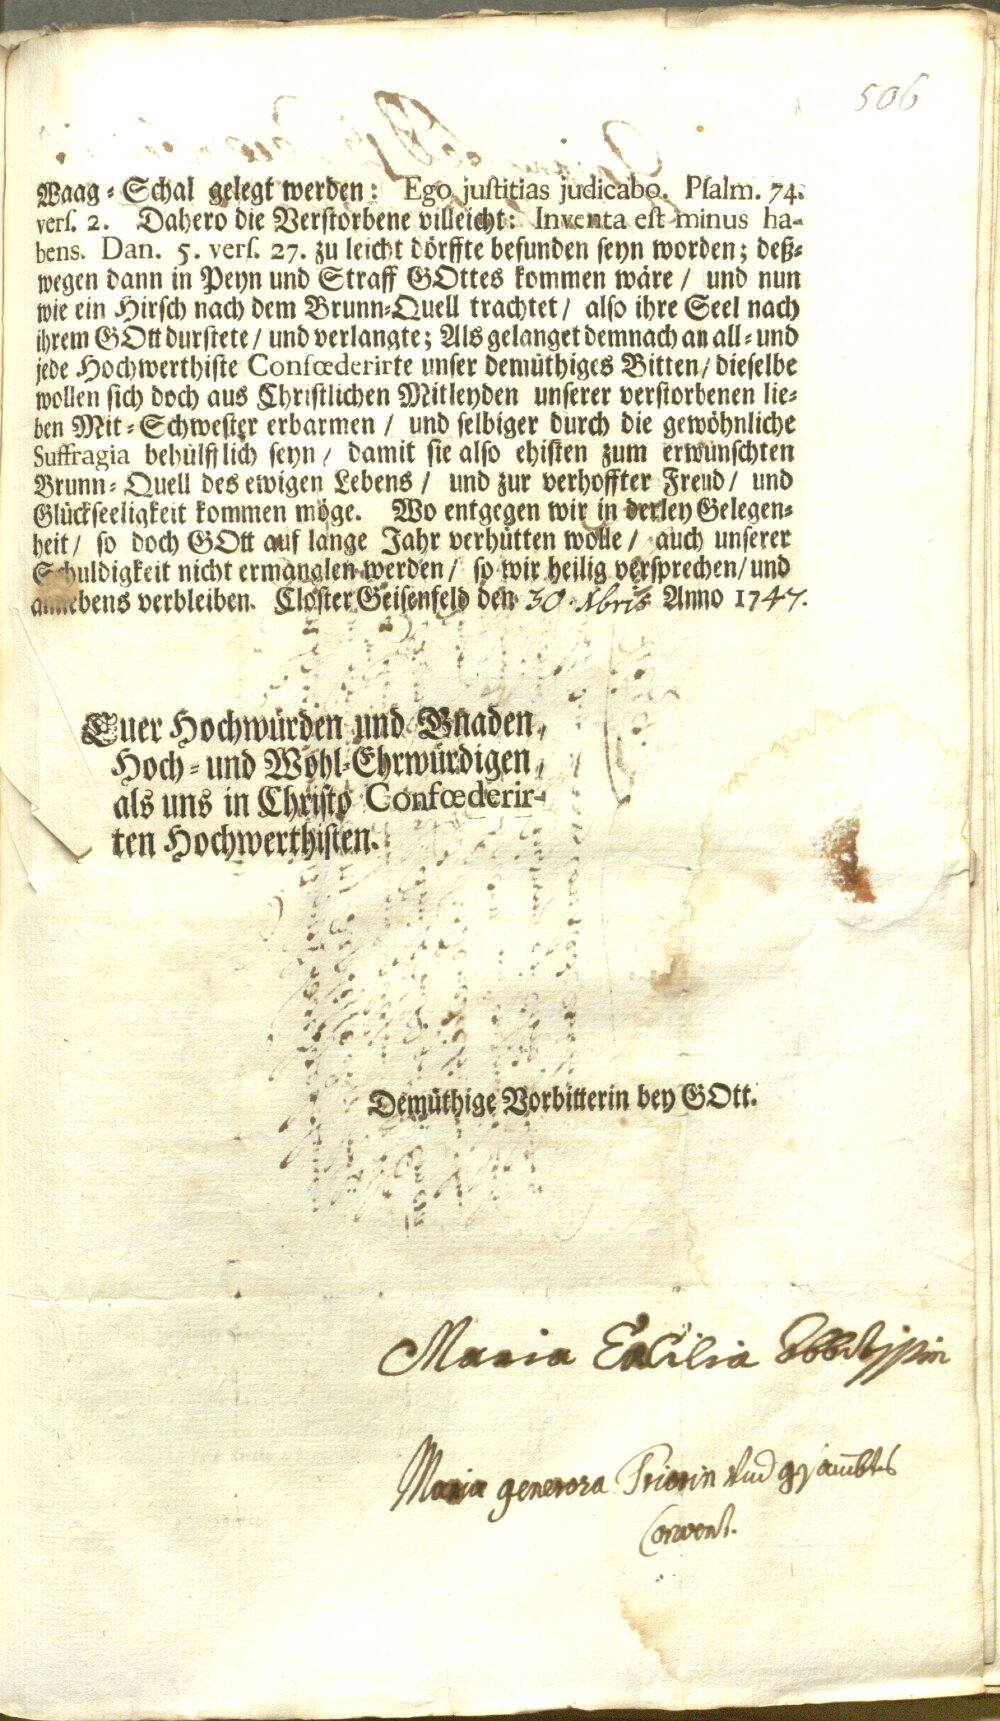 506
Waag-Schal gelegt werden: Ego justitias judicabo. Psalm. 74.
vers. 2. Dahero die Verstorbene villeicht: Inventa est minus ha-
bens. Dan. 5. vers. 27. zu leicht dörffte befunden seyn worden; deß-
wegen dann in Peyn und Straff GOttes kommen wäre / und nun
wie ein Hirsch nach dem Brunn-Quell trachtet / also ihre Seel nach
ihrem GOtt durstete / und verlangte; Als gelanget demnach an all- und
jede Hochwerthiste Confœderirte unser demüthiges Bitten / dieselbe
wollen sich doch aus Christlichen Mitleyden unserer verstorbenen lie-
ben Mit-Schwester erbarmen / und selbiger durch die gewöhnliche
Suffragia behülfflich seyn / damit sie also ehisten zum erwünschten
Brunn-Quell des ewigen Lebens / und zur verhoffter Freud / und
Glückseeligkeit kommen möge. Wo entgegen wir in derley Gelegen-
heit / so doch GOtt auf lange Jahr verhütten wolle / auch unserer
Schuldigkeit nicht ermanglen werden / so wir heilig versprechen / und
annebens verbleiben. Closter Geisenfeld den 30 Xbris Anno 1747.
Euer Hochwürden und Gnaden,
Hoch- und Wohl-Ehrwürdigen,
als uns in Christo Confœderir-
ten Hochwerthisten.
Demüthige Vorbitterin bey GOtt.
Maria Cæcilia Abbtissin
Maria generosa Priorin und gesambtes
Convent.